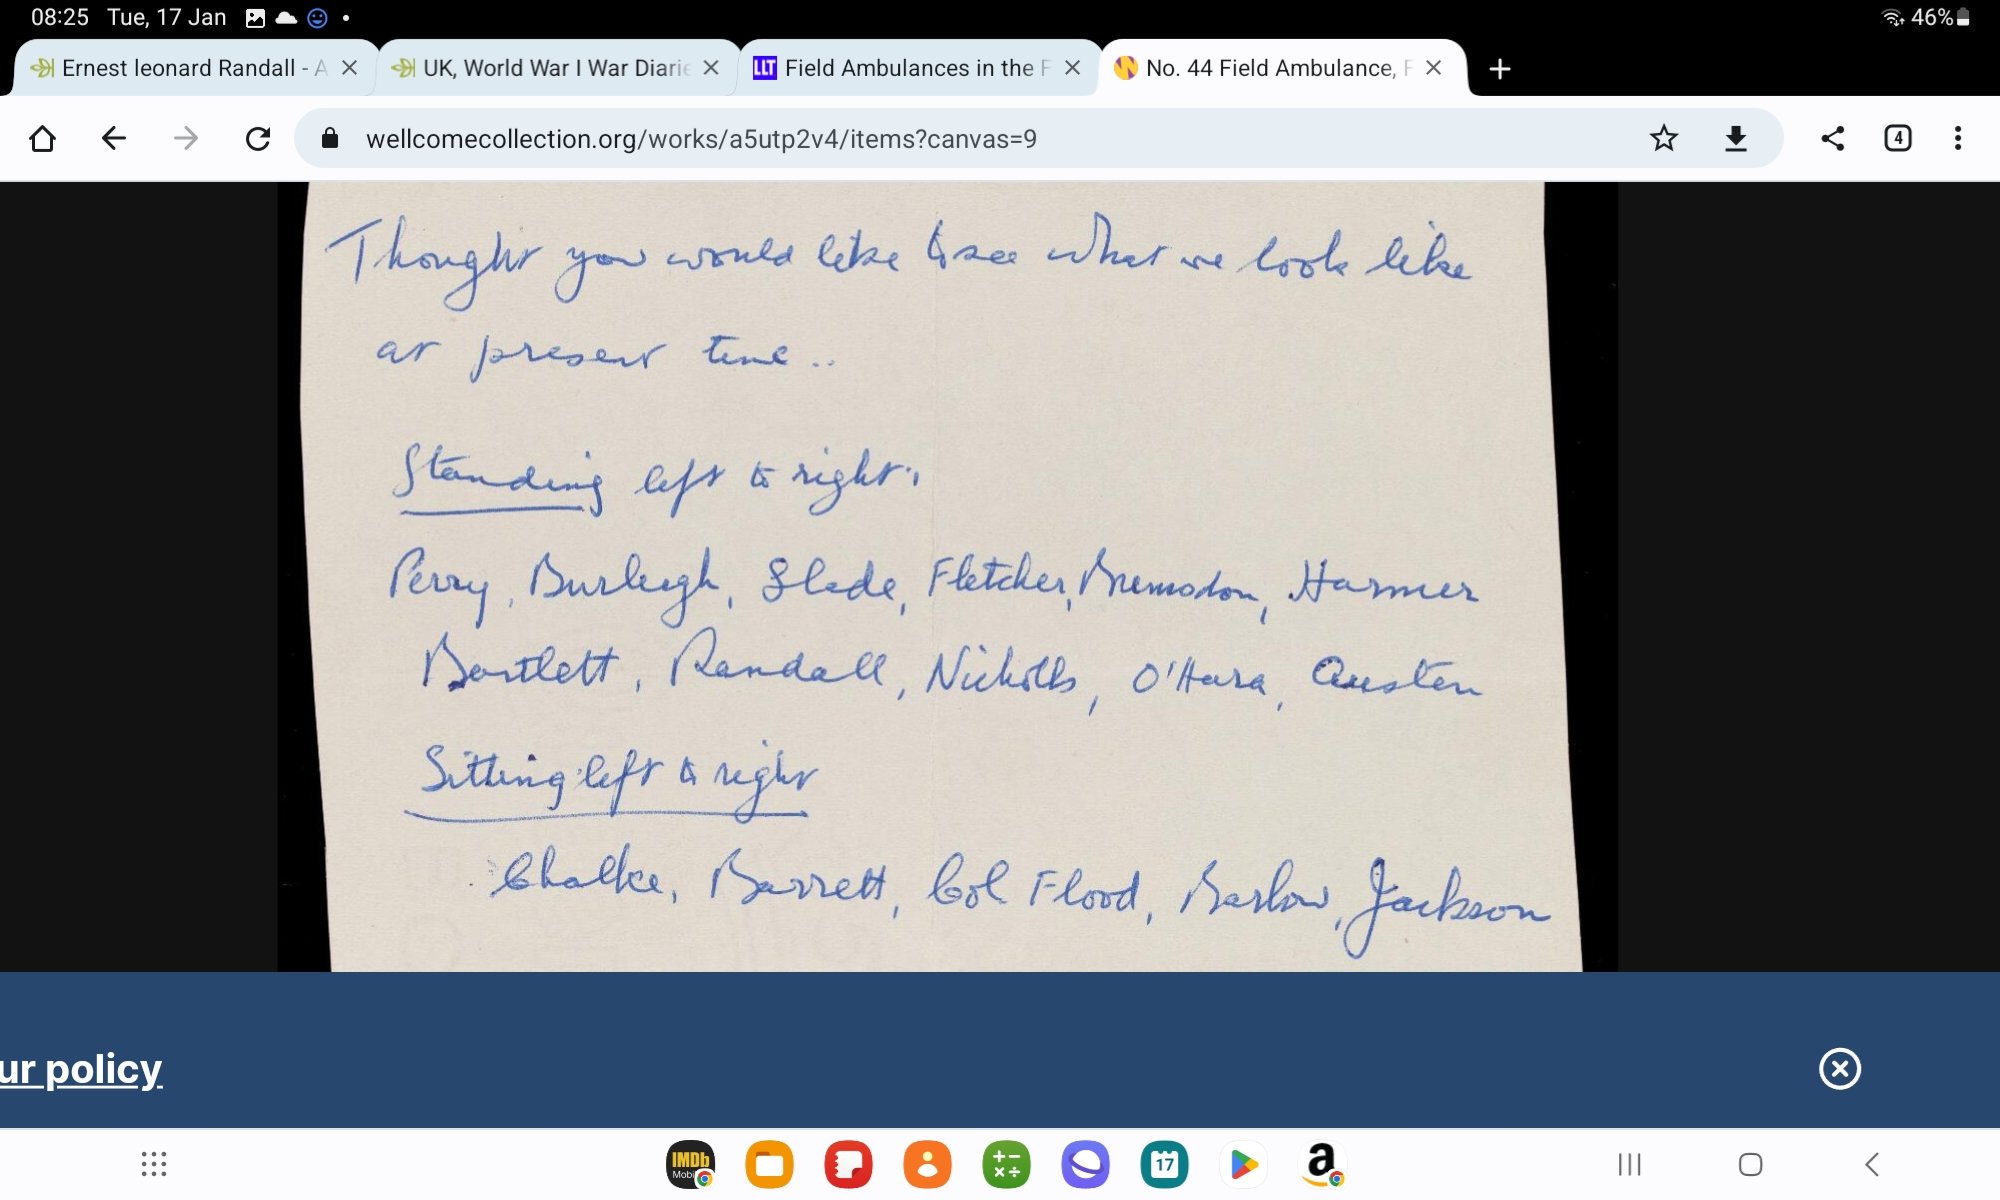 08:25 Tue, 17 Jan 46%
Ernest leonard Randall - A
UK, World War I War Diarie
LLT Field Ambulances in the F
No. 44 Field Ambulance, F
wellcomecollection.org/works/a5utp2v4/items?canvas=9
4
Thought you would like to see what we look like
at present time ..
Standing left to right:
Perry, Burleigh, Slade, Fletcher, Bremsdon, Harmer
Bartlett, Randall, Nicholls, O'Hara, Austen
Sitting left to right
Chalke, Barrett, Col Flood, Barlow, Jackson
ur policy
IMDb
Mobi
17
a